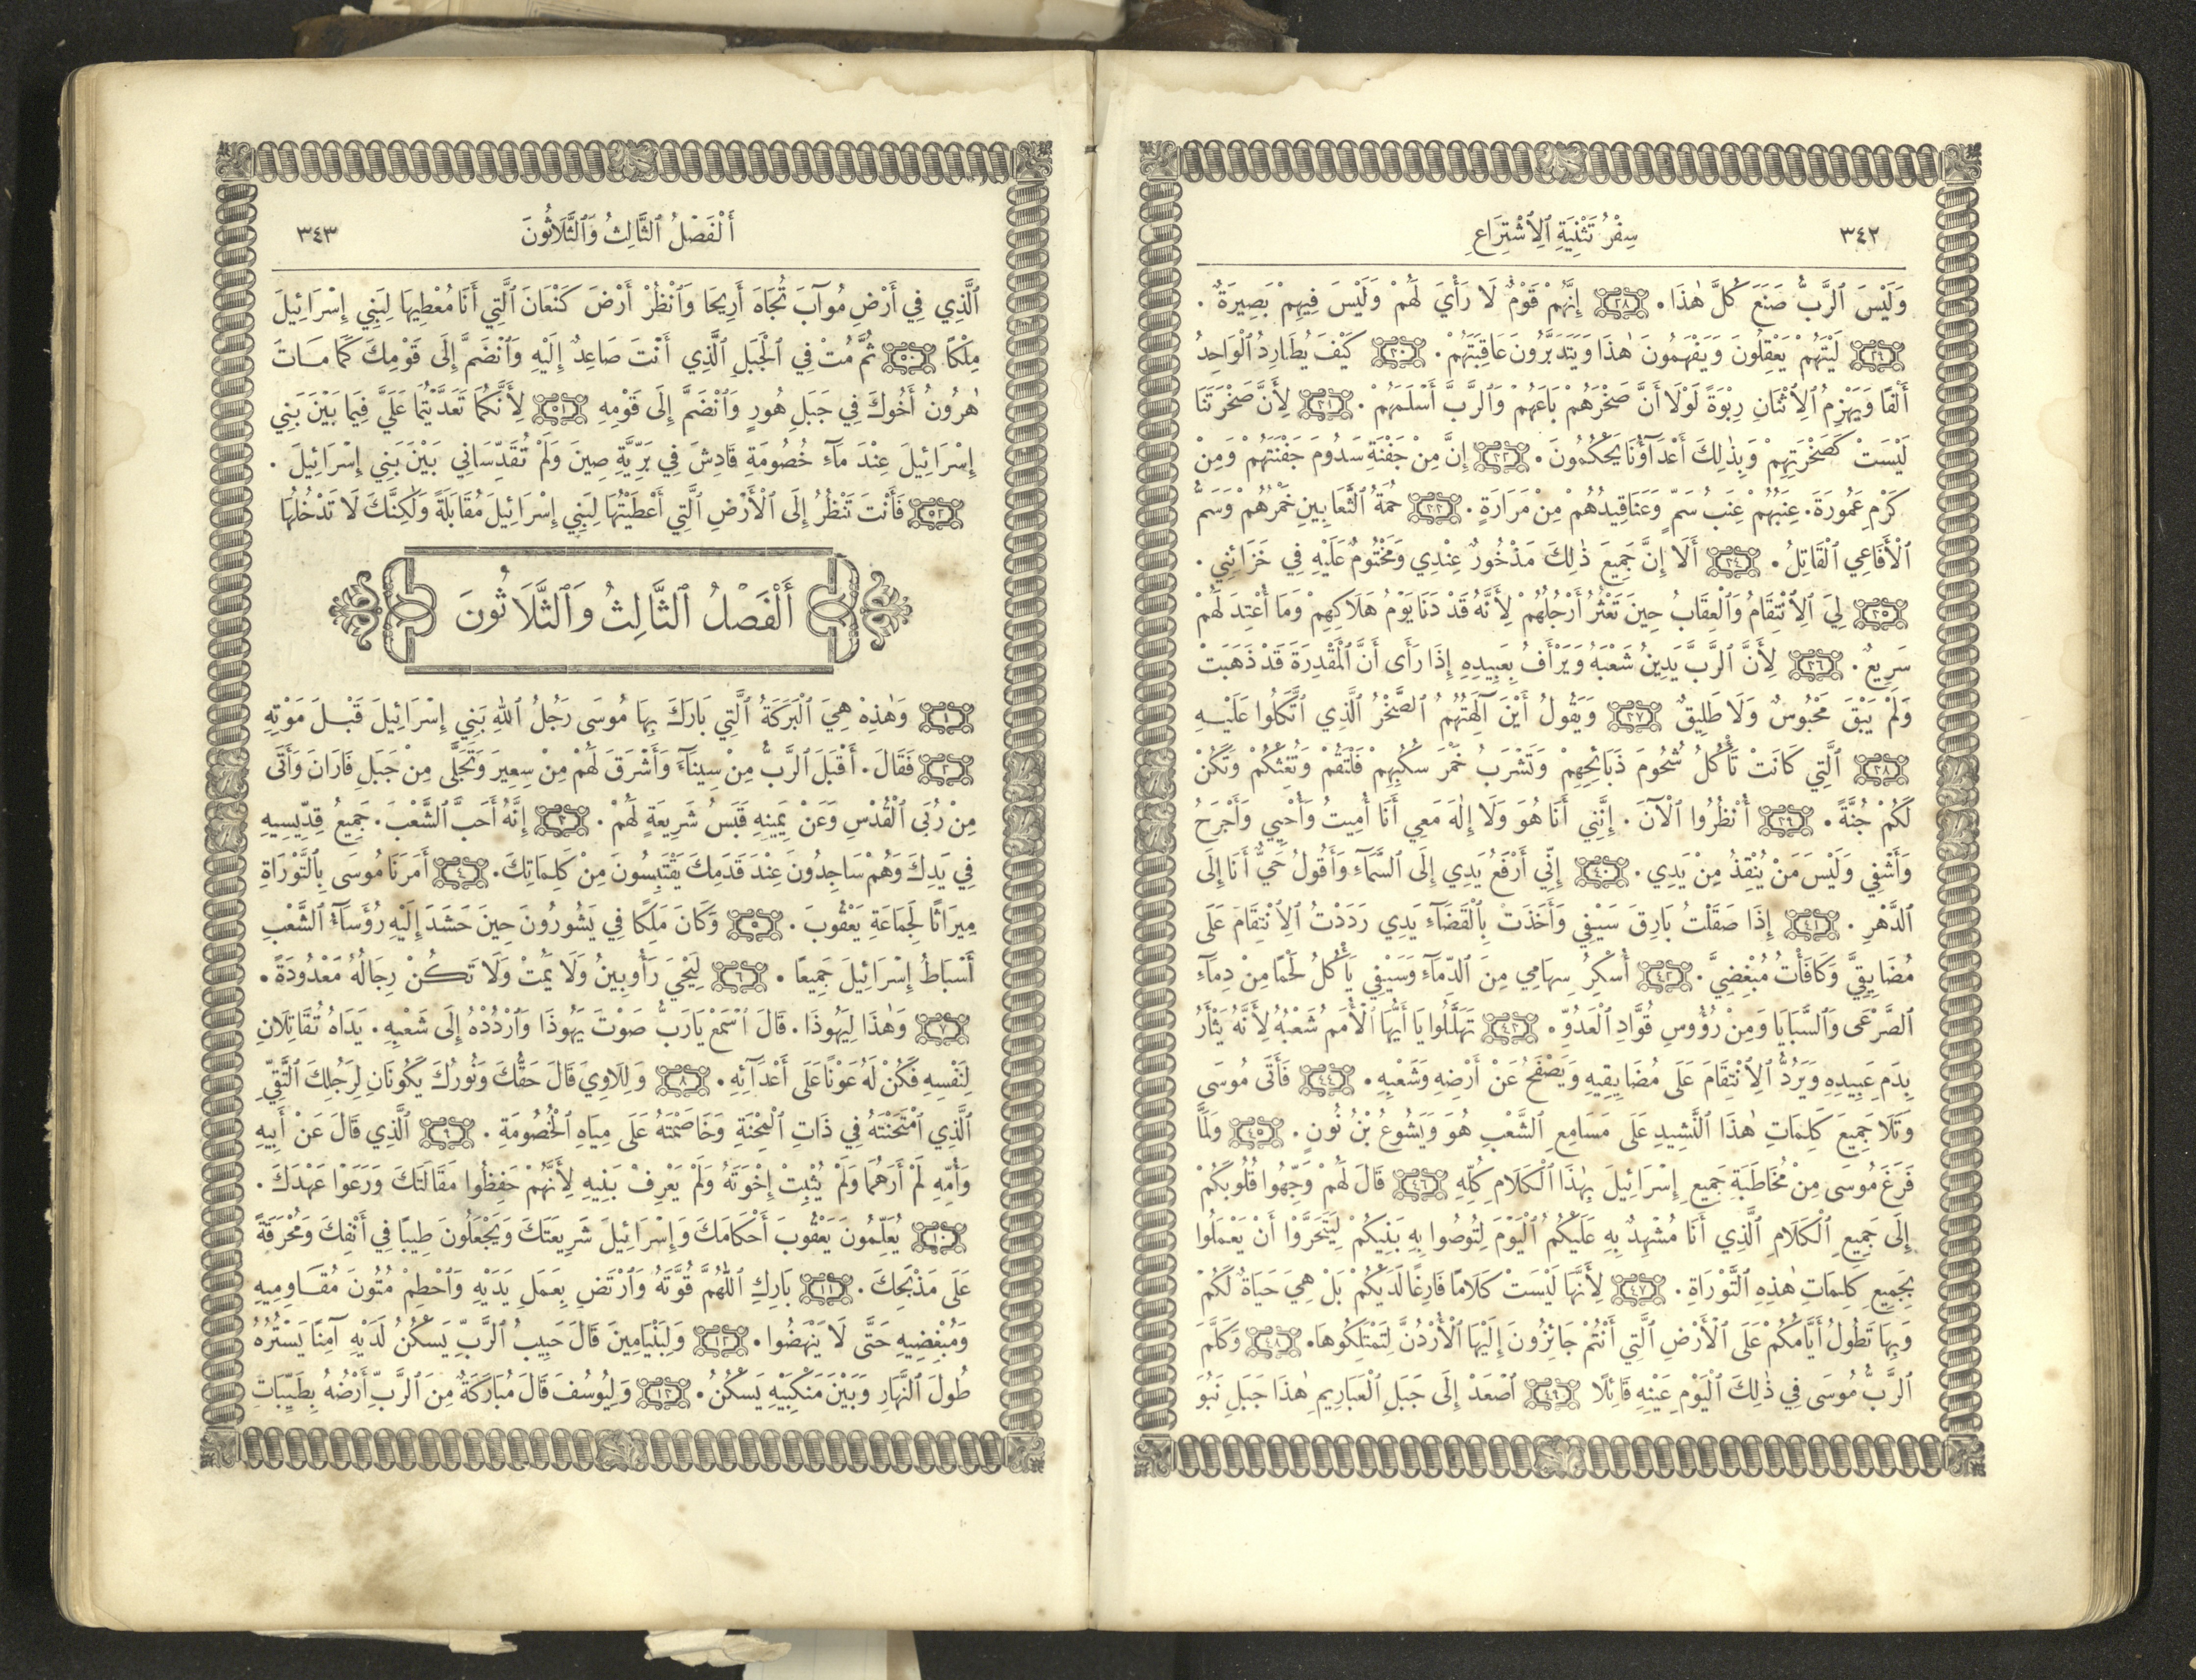 ٣٤٢
سِفْرُ تَثْنِيَةِ ٱلِٱشْتِرَاعِ
وَلَيْسَ ٱلرَّبُّ صَنَعَ كُلَّ هٰذَا . ٢٨ إِنَّهُمْ قَوْمٌ لَا رَأْيَ لَهُمْ وَلَيْسَ فِيهِمْ بَصِيرَةٌ .
٢٩ لَيْتَهُمْ يَعْقِلُونَ وَيَفْهَمُونَ هٰذَا وَيَتَدَبَّرُونَ عَاقِبَتَهُمْ . ٣٠ كَيْفَ يُطَارِدُ ٱلْوَاحِدُ
أَلْفًا وَيَهْزِمُ ٱلِٱثْنَانِ رِبْوَةً لَوْلَا أَنَّ صَخْرَهُمْ بَاعَهُمْ وَٱلرَّبَّ أَسْلَمَهُمْ . ٣١ لِأَنَّ صَخْرَتَنَا
لَيْسَتْ كَصَخْرَتِهِمْ وَبِذٰلِكَ أَعْدَآؤُنَا يَحْكُمُونَ . ٣٢ إِنَّ مِنْ جَفْنَةِ سَدُومَ جَفْنَتَهُمْ وَمِنْ
كَرْمِ عَمُورَةَ . عِنَبُهُمْ عِنَبُ سَمٍّ وَعَنَاقِيدُهُمْ مِنْ مَرَارَةٍ . ٣٣ حُمَةُ ٱلثَّعَابِينِ خَمْرُهُمْ وَسَمُّ
ٱلْأَفَاعِي ٱلْقَاتِلُ . ٣٤ أَلَا إِنَّ جَمِيعَ ذٰلِكَ مَذْخُورٌ عِنْدِي وَمَخْتُومٌ عَلَيْهِ فِي خَزَائِنِي .
٣٥ لِيَ ٱلِٱنْتِقَامُ وَٱلْعِقَابُ حِينَ تَعْثُرُ أَرْجُلُهُمْ لِأَنَّهُ قَدْ دَنَا يَوْمُ هَلَاكِهِمْ وَمَا أُعْتِدَ لَهُمْ
سَرِيعٌ . ٣٦ لِأَنَّ ٱلرَّبَّ يَدِينُ شَعْبَهُ وَيَرْأَفُ بِعَبِيدِهِ إِذَا رَأَى أَنَّ ٱلْمَقْدِرَةَ قَدْ ذَهَبَتْ
وَلَمْ يَبْقَ مَحْبُوسٌ وَلَا طَلِيقٌ ٣٧ وَيَقُولُ أَيْنَ آلِهَتُهُمُ ٱلصَّخْرُ ٱلَّذِي ٱتَّكَلُوا عَلَيْهِ
٣٨ ٱلَّتِي كَانَتْ تَأْكُلُ شُحُومَ ذَبَائِحِهِمْ وَتَشْرَبُ خَمْرَ سَكْبِهِمْ فَلْتَقُمْ وَتُغِثْكُمْ وَتَكُنْ
لَكُمْ جُنَّةً . ٣٩ أُنْظُرُوا ٱلْآنَ . إِنَّنِي أَنَا هُوَ وَلَا إِلٰهَ مَعِي أَنَا أُمِيتُ وَأُحْيِي وَأَجْرَحُ
وَأَشْفِي وَلَيْسَ مَنْ يُنْقِذُ مِنْ يَدِي . ٤٠ إِنِّي أَرْفَعُ يَدِي إِلَى ٱلسَّمَآءِ وَأَقُولُ حَيٌّ أَنَا إِلَى
ٱلدَّهْرِ . ٤١ إِذَا صَقَلْتُ بَارِقَ سَيْفِي وَأَخَذَتْ بِٱلْقَضَآءِ يَدِي رَدَدْتُ ٱلِٱنْتِقَامَ عَلَى
مُضَايِقِيَّ وَكَافَأْتُ مُبْغِضِيَّ . ٤٢ أُسْكِرُ سِهَامِي مِنَ ٱلدِّمَآءِ وَسَيْفِي يَأْكُلُ لَحْمًا مِنْ دِمَآءِ
ٱلصَّرْعَى وَٱلسَّبَايَا وَمِنْ رُؤُوسِ قُوَّادِ ٱلْعَدُوِّ . ٤٣ تَهَلَّلُوا يَا أَيُّهَا ٱلْأُمَمُ شَعْبُهُ لِأَنَّهُ يَثْأَرُ
بِدَمِ عَبِيدِهِ وَيَرُدُّ ٱلِٱنْتِقَامَ عَلَى مُضَايِقِيهِ وَيَصْفَحُ عَنْ أَرْضِهِ وَشَعْبِهِ . ٤٤ فَأَتَى مُوسَى
وَتَلَا جَمِيعَ كَلِمَاتِ هٰذَا ٱلنَّشِيدِ عَلَى مَسَامِعِ ٱلشَّعْبِ هُوَ وَيَشُوعُ بْنُ نُونٍ . ٤٥ وَلَمَّا
فَرَغَ مُوسَى مِنْ مُخَاطَبَةِ جَمِيعِ إِسْرَائِيلَ بِهٰذَا ٱلْكَلَامِ كُلِّهِ ٤٦ قَالَ لَهُمْ وَجِّهُوا قُلُوبَكُمْ
إِلَى جَمِيعِ ٱلْكَلَامِ ٱلَّذِي أَنَا مُشْهِدٌ بِهِ عَلَيْكُمُ ٱلْيَوْمَ لِتُوصُوا بِهِ بَنِيكُمْ لِيَتَحَرَّوْا أَنْ يَعْمَلُوا
بِجَمِيعِ كَلِمَاتِ هٰذِهِ ٱلتَّوْرَاةِ . ٤٧ لِأَنَّهَا لَيْسَتْ كَلَامًا فَارِغًا لَدَيْكُمْ بَلْ هِيَ حَيَاةٌ لَكُمْ
وَبِهَا تَطُولُ أَيَّامُكُمْ عَلَى ٱلْأَرْضِ ٱلَّتِي أَنْتُمْ جَائِزُونَ إِلَيْهَا ٱلْأُرْدُنَّ لِتَمْتَلِكُوهَا . ٤٨ وَكَلَّمَ
ٱلرَّبُّ مُوسَى فِي ذٰلِكَ ٱلْيَوْمِ عَيْنِهِ قَائِلًا ٤٩ ٱصْعَدْ إِلَى جَبَلِ ٱلْعَبَارِيمِ هٰذَا جَبَلِ نَبُوَ
أَلْفَصْلُ ٱلثَّالِثُ وَٱلثَّلَاثُونَ
٣٤٣
ٱلَّذِي فِي أَرْضِ مُوآبَ تُجَاهَ أَرِيحَا وَٱنْظُرْ أَرْضَ كَنْعَانَ ٱلَّتِي أَنَا مُعْطِيهَا لِبَنِي إِسْرَائِيلَ
مِلْكًا ٥٠ ثُمَّ مُتْ فِي ٱلْجَبَلِ ٱلَّذِي أَنْتَ صَاعِدٌ إِلَيْهِ وَٱنْضَمَّ إِلَى قَوْمِكَ كَمَا مَاتَ
هٰرُونُ أَخُوكَ فِي جَبَلِ هُورٍ وَٱنْضَمَّ إِلَى قَوْمِهِ ٥١ لِأَنَّكُمَا تَعَدَّيْتُمَا عَلَيَّ فِيمَا بَيْنَ بَنِي
إِسْرَائِيلَ عِنْدَ مَآءِ خُصُومَةِ قَادِشَ فِي بَرِّيَّةِ صِينَ وَلَمْ تُقَدِّسَانِي بَيْنَ بَنِي إِسْرَائِيلَ .
٥٢ فَأَنْتَ تَنْظُرُ إِلَى ٱلْأَرْضِ ٱلَّتِي أَعْطَيْتُهَا لِبَنِي إِسْرَائِيلَ مُقَابَلَةً وَلٰكِنَّكَ لَا تَدْخُلُهَا
أَلْفَصْلُ ٱلثَّالِثُ وَٱلثَّلَاثُونَ
١ وَهٰذِهْ هِيَ ٱلْبَرَكَةُ ٱلَّتِي بَارَكَ بِهَا مُوسَى رَجُلُ ٱللهِ بَنِي إِسْرَائِيلَ قَبْلَ مَوْتِهِ
٢ فَقَالَ . أَقْبَلَ ٱلرَّبُّ مِنْ سِينَآءَ وَأَشْرَقَ لَهُمْ مِنْ سِعِيرَ وَتَجَلَّى مِنْ جَبَلِ فَارَانَ وَأَتَى
مِنْ رُبَى ٱلْقُدْسِ وَعَنْ يَمِينِهِ قَبَسُ شَرِيعَةٍ لَهُمْ . ٣ إِنَّهُ أَحَبَّ ٱلشَّعْبَ . جَمِيعُ قِدِّيسِيهِ
فِي يَدِكَ وَهُمْ سَاجِدُونَ عِنْدَ قَدَمِكَ يَقْتَبِسُونَ مِنْ كَلِمَاتِكَ . ٤ أَمَرَنَا مُوسَى بِٱلتَّوْرَاةِ
مِيرَاثًا لِجَمَاعَةِ يَعْقُوبَ . ٥ وَكَانَ مَلِكًا فِي يَشُورُونَ حِينَ حَشَدَ إِلَيْهِ رُؤَسَآءُ ٱلشَّعْبِ
أَسْبَاطُ إِسْرَائِيلَ جَمِيعًا . ٦ لِيَحْيَ رَأُوبِينُ وَلَا يَمُتْ وَلَا تَكُنْ رِجَالُهُ مَعْدُودَةً .
٧ وَهٰذَا لِيَهُوذَا . قَالَ ٱسْمَعْ يَارَبُّ صَوْتَ يَهُوذَا وَٱرْدُدْهُ إِلَى شَعْبِهِ . يَدَاهُ تُقَاتِلَانِ
لِنَفْسِهِ فَكُنْ لَهُ عَوْنًا عَلَى أَعْدَآئِهِ . ٨ وَلِلَاوِيَ قَالَ حَقُّكَ وَنُورُكَ يَكُونَانِ لِرَجُلِكَ ٱلتَّقِيِّ
ٱلَّذِي ٱمْتَحَنْتَهُ فِي ذَاتِ ٱلْمِحْنَةِ وَخَاصَمْتَهُ عَلَى مِيَاهِ ٱلْخُصُومَةِ . ٩ ٱلَّذِي قَالَ عَنْ أَبِيهِ
وَأُمِّهِ لَمْ أَرَهُمَا وَلَمْ يُثْبِتْ إِخْوَتَهُ وَلَمْ يَعْرِفْ بَنِيهِ لِأَنَّهُمْ حَفِظُوا مَقَالَتَكَ وَرَعَوْا عَهْدَكَ .
١٠ يُعَلِّمُونَ يَعْقُوبَ أَحْكَامَكَ وَإِسْرَائِيلَ شَرِيعَتَكَ وَيَجْعَلُونَ طِيبًا فِي أَنْفِكَ وَمُحْرَقَةً
عَلَى مَذْبَحِكَ . ١١ بَارِكِ ٱللّٰهُمَّ قُوَّتَهُ وَٱرْتَضِ بِعَمَلِ يَدَيْهِ وَٱحْطِمْ مُتُونَ مُقَاوِمِيهِ
وَمُبْغِضِيهِ حَتَّى لَا يَنْهَضُوا . ١٢ وَلِبَنْيَامِينَ قَالَ حَبِيبُ ٱلرَّبِّ يَسْكُنُ لَدَيْهِ آمِنًا يَسْتُرُهُ
طُولَ ٱلنَّهَارِ وَبَيْنَ مَنْكِبَيْهِ يَسْكُنُ . ١٣ وَلِيُوسُفَ قَالَ مُبَارَكَةٌ مِنَ ٱلرَّبِّ أَرْضُهُ بِطَيِّبَاتِ